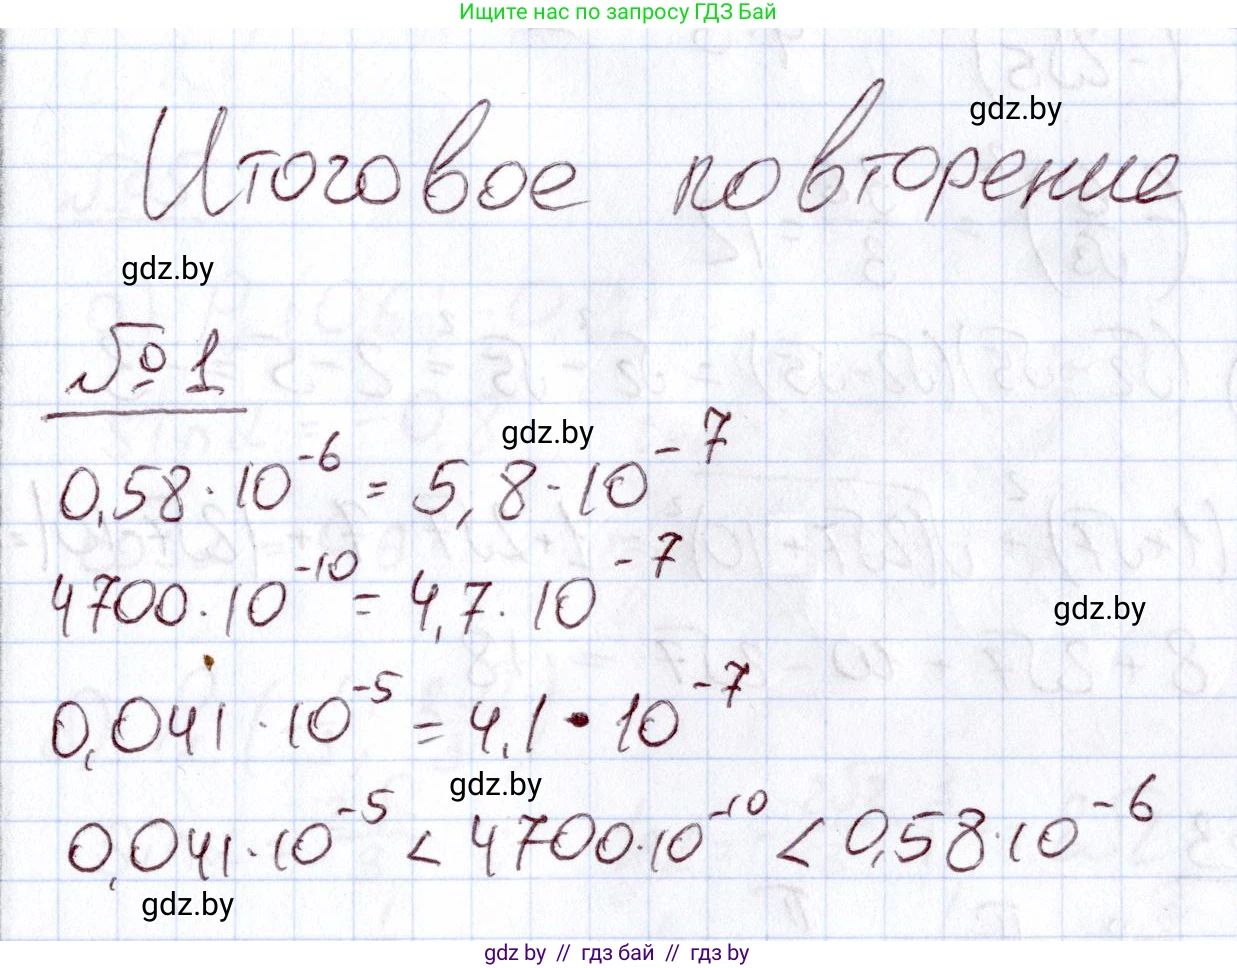 Ищите нас по запросу ГДЗ Бай
gdz.by
Итоговое повторение
gdz.by
№ 1
gdz.by
0,58 · 10⁻⁶ = 5,8 · 10⁻⁷
4700 · 10⁻¹⁰ = 4,7 · 10⁻⁷
gdz.by
0,041 · 10⁻⁵ = 4,1 · 10⁻⁷
gdz.by
0,041 · 10⁻⁵ < 4700 · 10⁻¹⁰ < 0,58 · 10⁻⁶
gdz.by
gdz by // гдз бай // gdz by